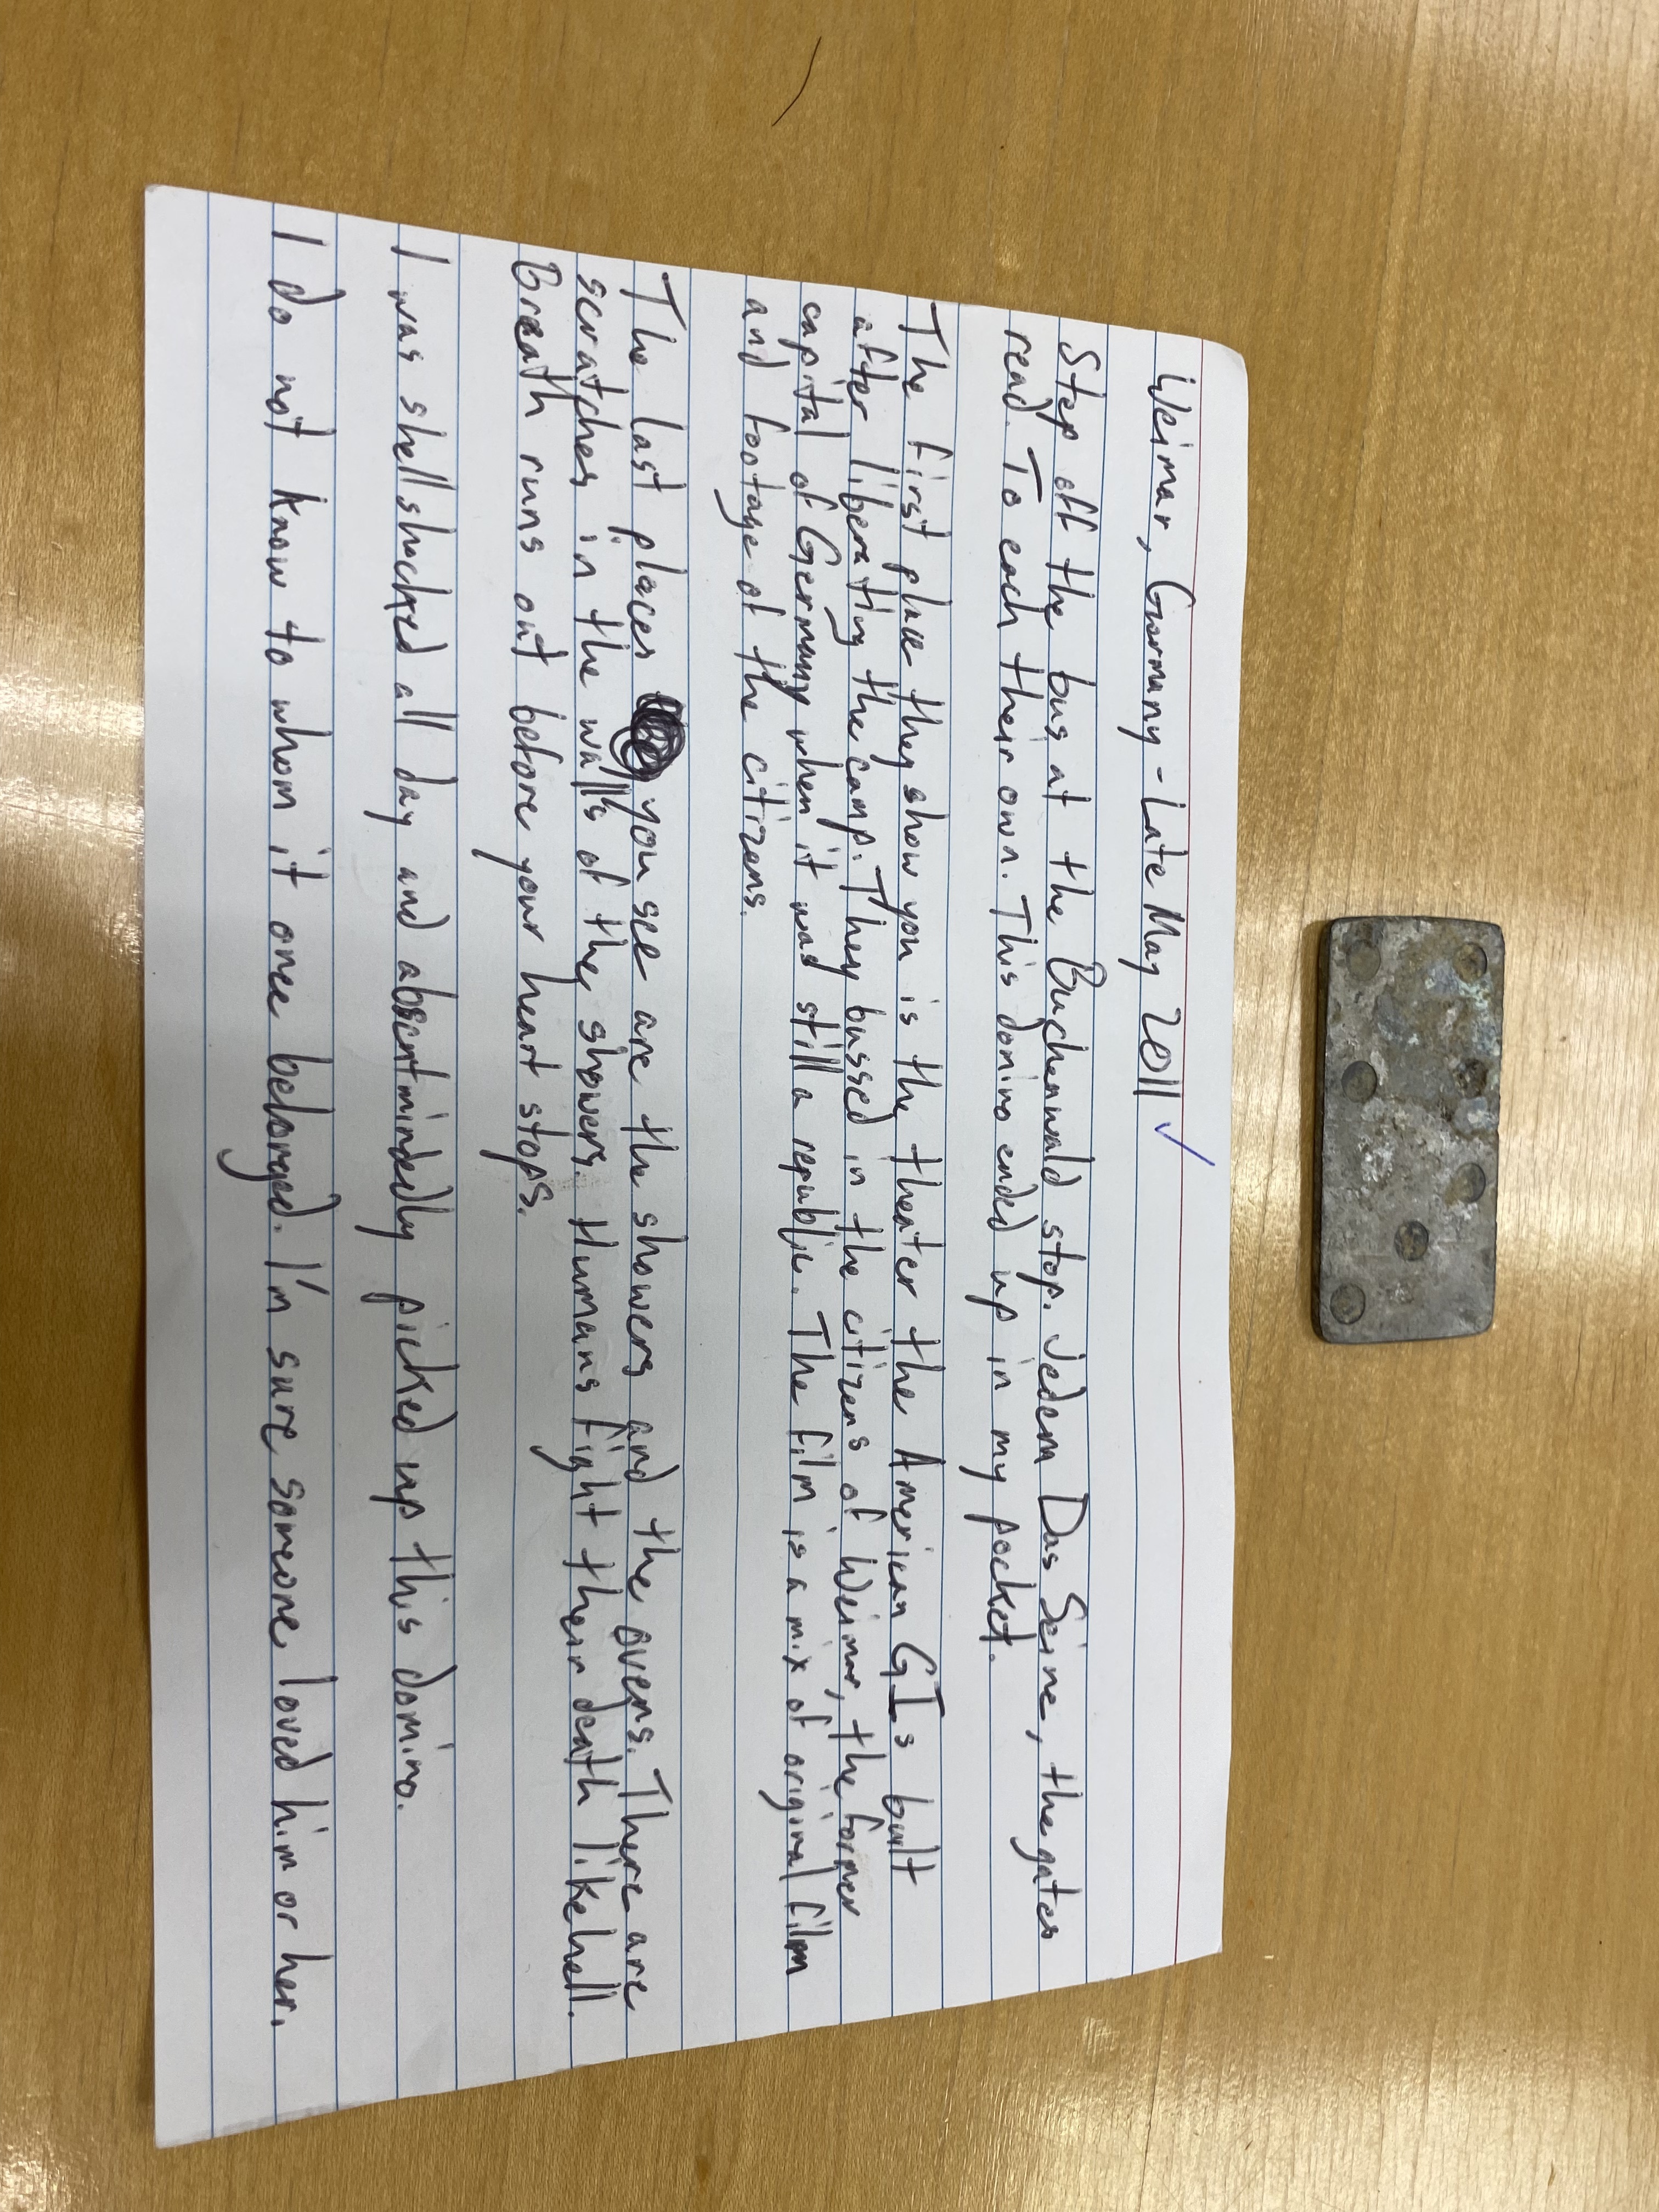 Weimar, Germany - Late May 2011 ✓
Step off the bus at the Buchenwald stop. Jedem Das Seine, the gates
read. To each their own. This domino ended up in my pocket.
The first place they show you is the theater the American GIs built
after liberating the camp. They bussed in the citizens of Weimar, the former
capital of Germany when it was still a republic. The film is a mix of original film
and footage of the citizens.
The last places you see are the showers and the ovens. There are
scratches in the walls of the showers. Humans fight their death like hell.
Breath runs out before your heart stops.
I was shellshocked all day and absentmindedly picked up this domino.
I do not know to whom it once belonged. I'm sure someone loved him or her.